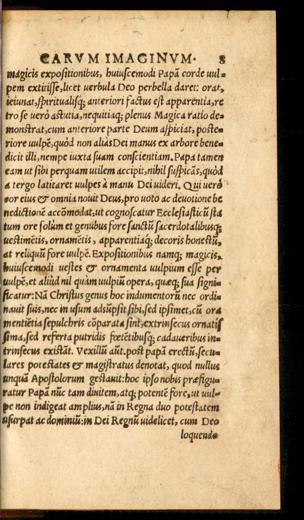 CARVM IMAGINVM. 8
magicis expositionibus, huiuscemodi Papã corde vul-
pem extitisse, licet verbula Deo perbella daret: orat,
ieiunat, spiritualisq; anteriori factus est apparentia, re
tro se verò astutia, nequitiaq; plenus Magica ratio de-
monstrat, cum anteriore parte Deum aspiciat, poste-
riore vulpē, quòd non aliàs Dei manus ex arbore bene-
dicit illi, nempe iuxta suam conscientiam. Papa tamen
eam ut sibi perquam utilem accipit, nihil suspicãs, quòd
à tergo latitaret vulpes à manu Dei videri. Qui verò
cor eius & omnia nouit Deus, pro voto ac deuotione be
nedictionē accōmodat, ut cognoscatur Ecclesiasticũ sta
tum ore solùm et genibus fore sanctũ sacerdotalibusq;
vestimētis, ornamētis, apparentiaq; decoris honestũ,
at reliquũ fore vulpē. Expositionibus namq; magicis,
huiuscemodi vestes & ornamenta vulpium esse per
vulpē, et aliud nil quàm vulpiũ opera, quæq; sua signi-
ficatur: Nã Christus genus hoc indumentorũ nec ordi-
nauit suis, nec in usum adsũpsit sibi, sed ipsimet, cũ ora
mentitia sepulchris cōparata sint, extrinsecus ornatis
sima, sed referta putridis fœtētibusq; cadaueribus in-
trinsecus existãt. Vexillũ aũt. post papã erectũ, secu-
lares potestates & magistratus denotat, quod nullus
unquã Apostolorum gestauit: hoc ipso nobis præfigu-
ratur Papã nũc tam dinitem, atq; potentē fore, ut vul-
pe non indigeat amplius, nã in Regna duo potestatem
usurpat ac dominiũ: in Dei Regnũ videlicet, cum Deo
loquendo